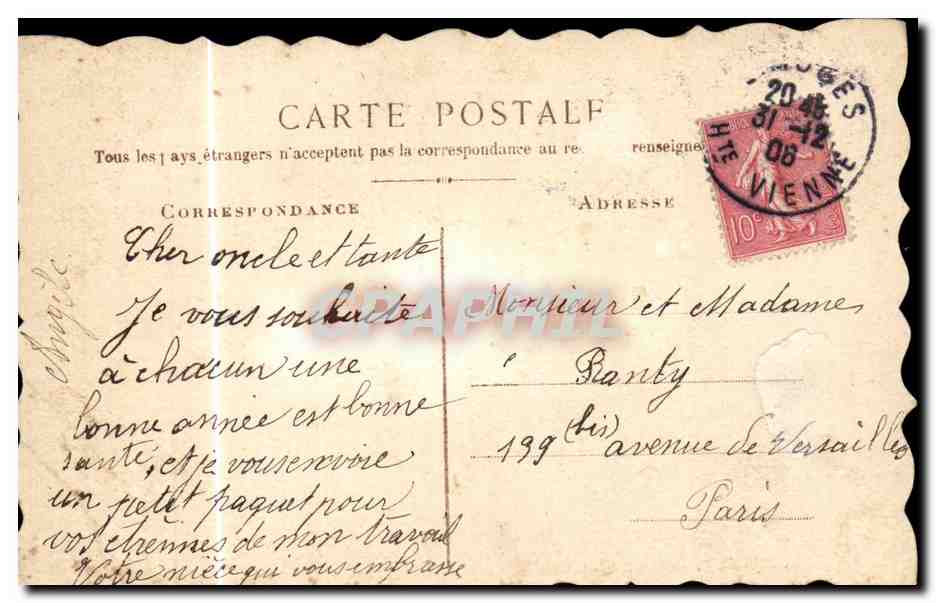 CARTE POSTALE
Tous les pays étrangers n'acceptent pas la correspondance au renseigne
CORRESPONDANCE
ADRESSE
20 45
31 -12
06
Hte VIENNE
10c
Cher oncle et tante
Je vous souhaite
à chacun une
bonne année est bonne
santé, et je vous envoie
un petit paquet pour
vos étrennes de mon travail
Votre nièce qui vous embrasse
Angèle
Monsieur et Madame
Ranty
199 (bis) avenue de Versailles
Paris
GRAPHIL